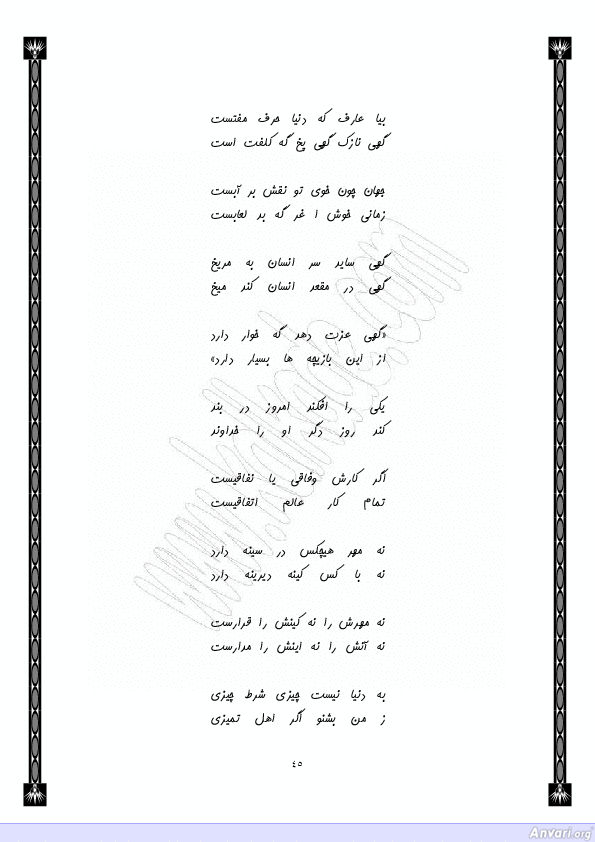 بیا عارف که دنیا حرف مفتست
گهی نازک گهی یخ گه کلفت است
جهان چون خوی تو نقش بر آبست
زمانی خوش ا غر گه بد لعابست
گهی ساید سر انسان به مریخ
گهی در مقعد انسان کند میخ
«گهی عزت دهد گه خوار دارد
از این بازیچه ها بسیار دارد»
یکی را افکند امروز در بند
کند روز دگر او را خداوند
اگر کارش وفاقی یا نفاقیست
تمام کار عالم اتفاقیست
نه مهر هیچکس در سینه دارد
نه با کس کینه دیرینه دارد
نه مهرش را نه کینش را قرارست
نه آنش را نه اینش را مدارست
به دنیا نیست چیزی شرط چیزی
ز من بشنو اگر اهل تمیزی
٤٥
Anvari.org